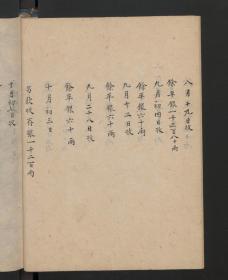 八月十九日收
餘平銀一千二百八十兩
九月初四日收
餘平銀六十兩
九月十二日收
餘平銀六十兩
九月二十八日收
餘平銀六十兩
十月初三日
另款收存銀一千二百兩
十月初六日收